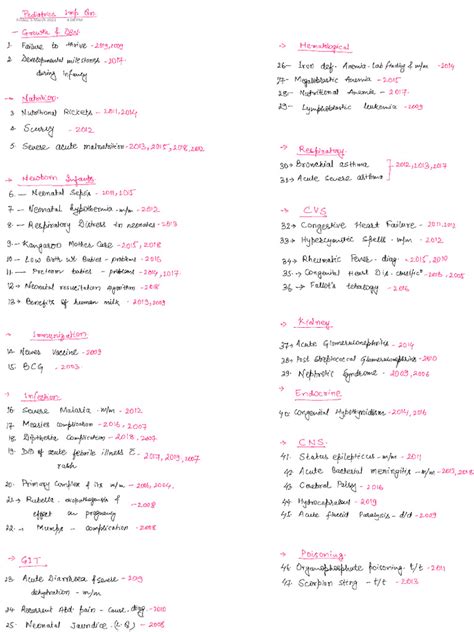 Pediatrics Imp Qn
→ Growth & Dev.
1. Failure to thrive - 2019, 2009
2. Developmental milestones - 2017
during infancy
→ Nutrition
3 Nutritional Rickets - 2011, 2014
4 Scurvy - 2012
5 Severe acute malnutrition - 2013, 2015, 2018, 2012
→ Newborn Infants
6 - Neonatal Sepsis - 2011, 2015
7 - Neonatal hypothermia - m/m - 2012
8 - Respiratory Distress in neonates - 2013
9 - Kangaroo Mother Care - 2015, 2018
10 - Low Birth Wt Babies - problems - 2016
11 - Preterm babies - problems - 2014, 2017
12 - Neonatal resuscitation algorithm - 2018
13 - Benefits of human milk - 2013, 2009
→ Immunization
14. Newer Vaccine - 2009
15. BCG - 2003
→ Infection
16 Severe Malaria - m/m - 2012
17 Measles complication - 2016, 2007
18 Diphtheria Complication - 2018, 2007
19. D/D of acute febrile illness c̄ - 2017, 2019, 2007
rash
20. Primary Complex & its m/m - 2014
21 - Rubella - &
effect on pregnancy - 2008
22 - Mumps - Complication - 2008
→ GIT
23 Acute Diarrhoea & severe - 2019
dehydration - m/m
24 Recurrent Abd. pain - cause, diag - 2010
25. Neonatal Jaundice - 2008
→ Hematological
26 - Iron def. Anemia - lab finding & m/m - 2014
27 - Megaloblastic Anemia - 2015
28 - Nutritional Anemia - 2017
29 - Lymphoblastic leukemia - 2009
→ Respiratory
30 → Bronchial asthma } 2012, 2013, 2017
31 → Acute Severe asthma
→ CVS
32 → Congestive Heart Failure - 2011, 2012
33 → Hypercyanotic Spells - m/m - 2012
34 → Rheumatic Fever - diag - 2015, 2010
35 → Congenital Heart Dis. - classific^n - 2008
36 → Fallot's tetralogy - 2016
→ Kidney
37 → Acute Glomerulonephritis - 2014
38 → Post Streptococcal Glomerulonephritis - 2010
39 → Nephrotic Syndrome - 2009, 2006
→ Endocrine
40. Congenital Hypothyroidism - 2014, 2016
→ CNS
41. Status epilepticus - m/m - 2011
42 Acute Bacterial meningitis - m/m - 2013, 2018
43 Cerebral Palsy - 2016
44 Hydrocephalus - 2019
45 Acute flaccid Paralysis - d/d - 2009
→ Poisoning
46 → Organophosphate poisoning - t/t - 2011
47 → Scorpion sting - t/t - 2013